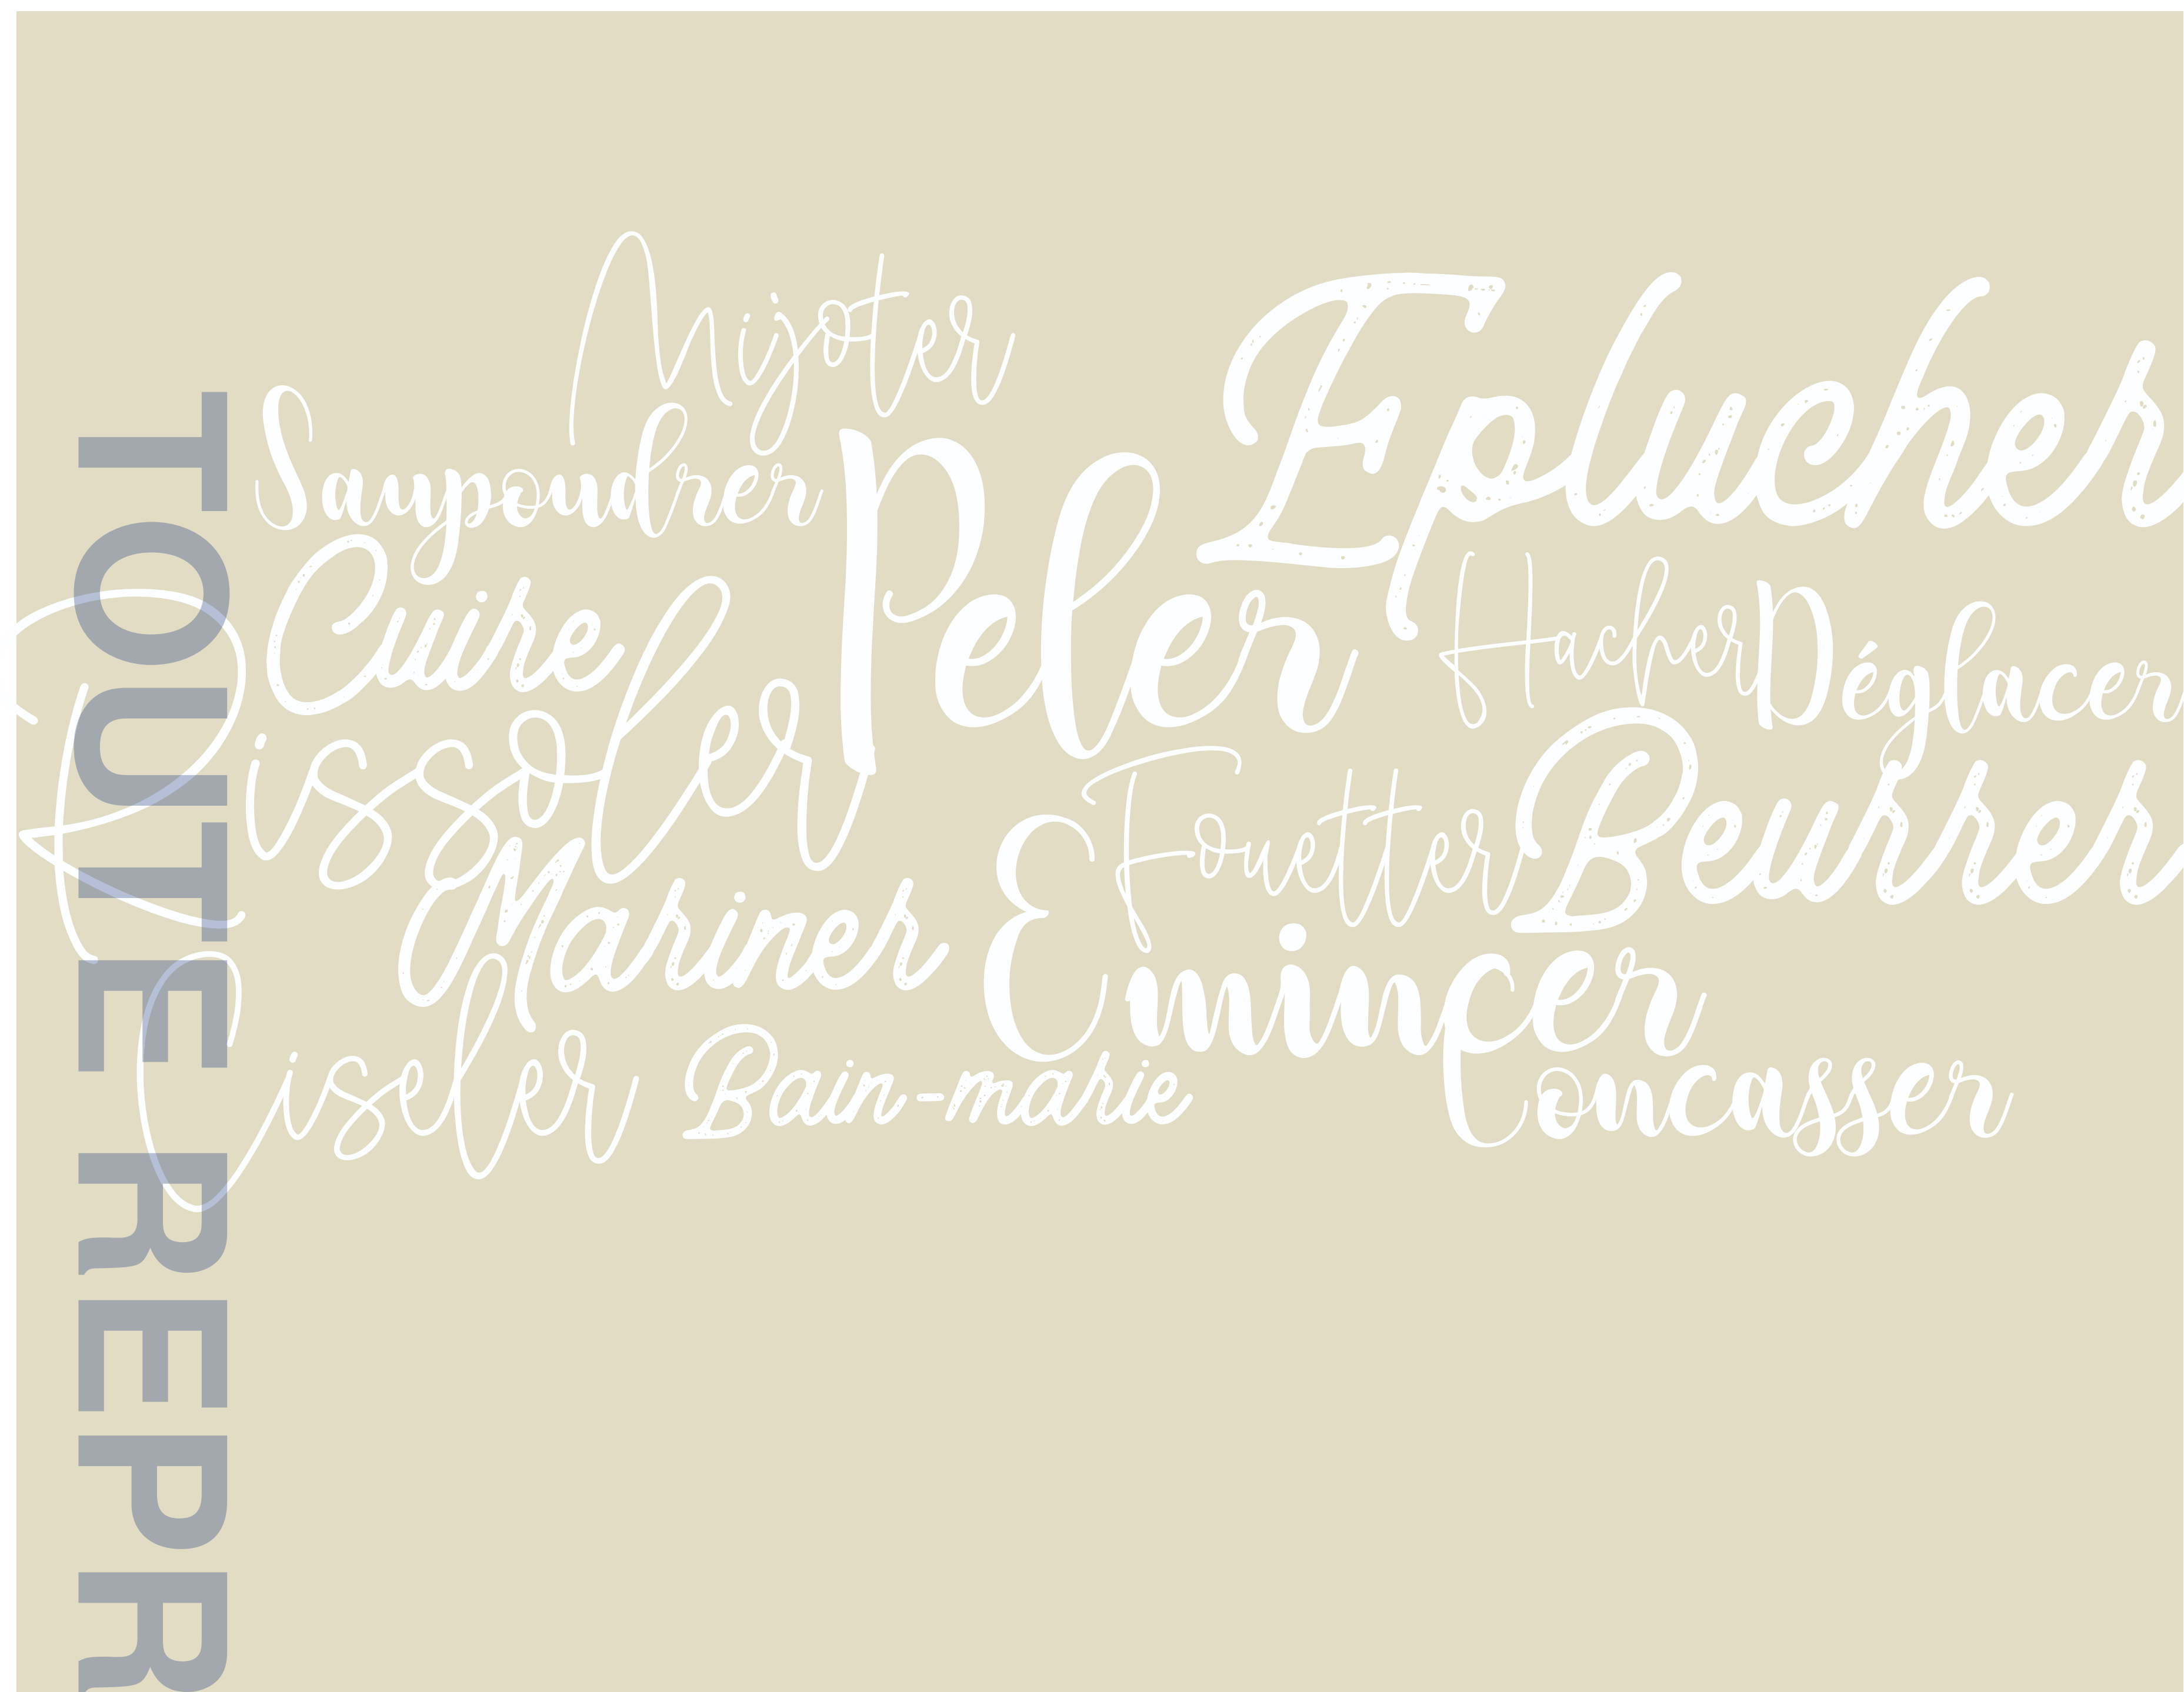 Mijoter
Eplucher
Saupoudrer
Peler
Cuire
Hacher
Déglacer
Rissoler
Fouetter
Beurrer
Fariner
Emincer
Ciseler
Bain-marie
Concasser
TOUTE REPR